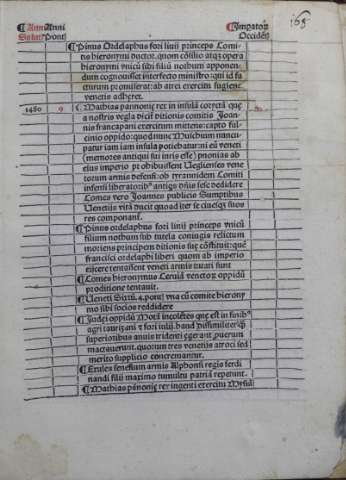 Anni Anni
Salut. Pont.
Impator
Occiden.
165
¶ Pinus Ordelaphus fori livii princeps Lomi
nis hieronymi ductor, quom cōsilio atqz opera
hieronymi vnicū sibi filiū nothum apponen
dum cognouisset interfecto ministro: qui id fa
cturum promiserat: ab atrei exercitu fugiens
venetis adheret.
1480 9
¶ Mathias pānoniē rex in insulā que
a nostris vegla dicit ditionis comitis Joan
nis francapani exercitum mittens: capto ful
cinio oppido: quod nunc Muschium nuncu
patur iam iam insula potiebatur: ni eū veneti
(memores antiqui sui iuris esse) pnonias ab
eius imperio prohibuissent Veglienses vene
torum armis defensi: ob tyrannidem Lomiti
infensi liberatoribz antiqs dn̄is sese dedidere
Lomes vero Joannes publicis sumptibus
Uenetiis vitā ducit quo ad iter se eiusqz suos
res componant.
¶ Pinus ordelaphus fori livii princeps vnicū
filium nothum sub tutela coniugis relictum
moriens principem ditionis suę cōstituit: quē
francisci ordelaphi liberi quom ab imperio
eiicere tentassent veneti armis tutati sunt
¶ Lomes hieronymus Lerviā venetor oppidū
proditione tentauit.
¶ Ueneti Sixtū. 4. pont. vna cū comite hierony
mo sibi socios reddidere
¶ Judei oppidū Mot incolētes que est in finibz
agri taurisani z fori iulii, haud dissimile
superioribus annis tridenti egerant puerum
mactauerunt. quorum tres venetiis atroci sed
merito supplicio concremantur.
¶ Exules senensium armis Alphonsi regis ferdi
nandi filii maximo tumultu patriā repetunt.
¶ Mathias pānoniē rex ingenti exercitu Mysiā